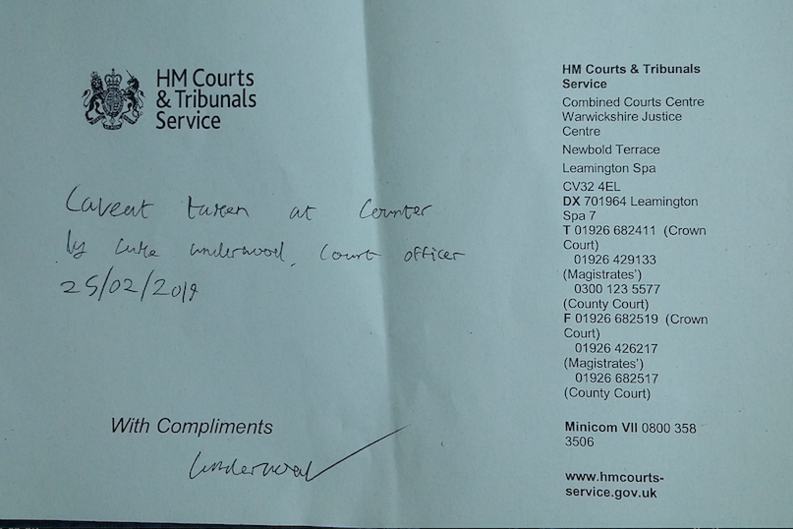 HM Courts
& Tribunals
Service
Caveat taken at Counter
by Luke Underwood, Court officer
25/02/2019
With Compliments
Underwood
HM Courts & Tribunals
Service
Combined Courts Centre
Warwickshire Justice
Centre
Newbold Terrace
Leamington Spa
CV32 4EL
DX 701964 Leamington
Spa 7
T 01926 682411 (Crown
Court)
01926 429133
(Magistrates')
0300 123 5577
(County Court)
F 01926 682519 (Crown
Court)
01926 426217
(Magistrates')
01926 682517
(County Court)
Minicom VII 0800 358
3506
www.hmcourts-
service.gov.uk